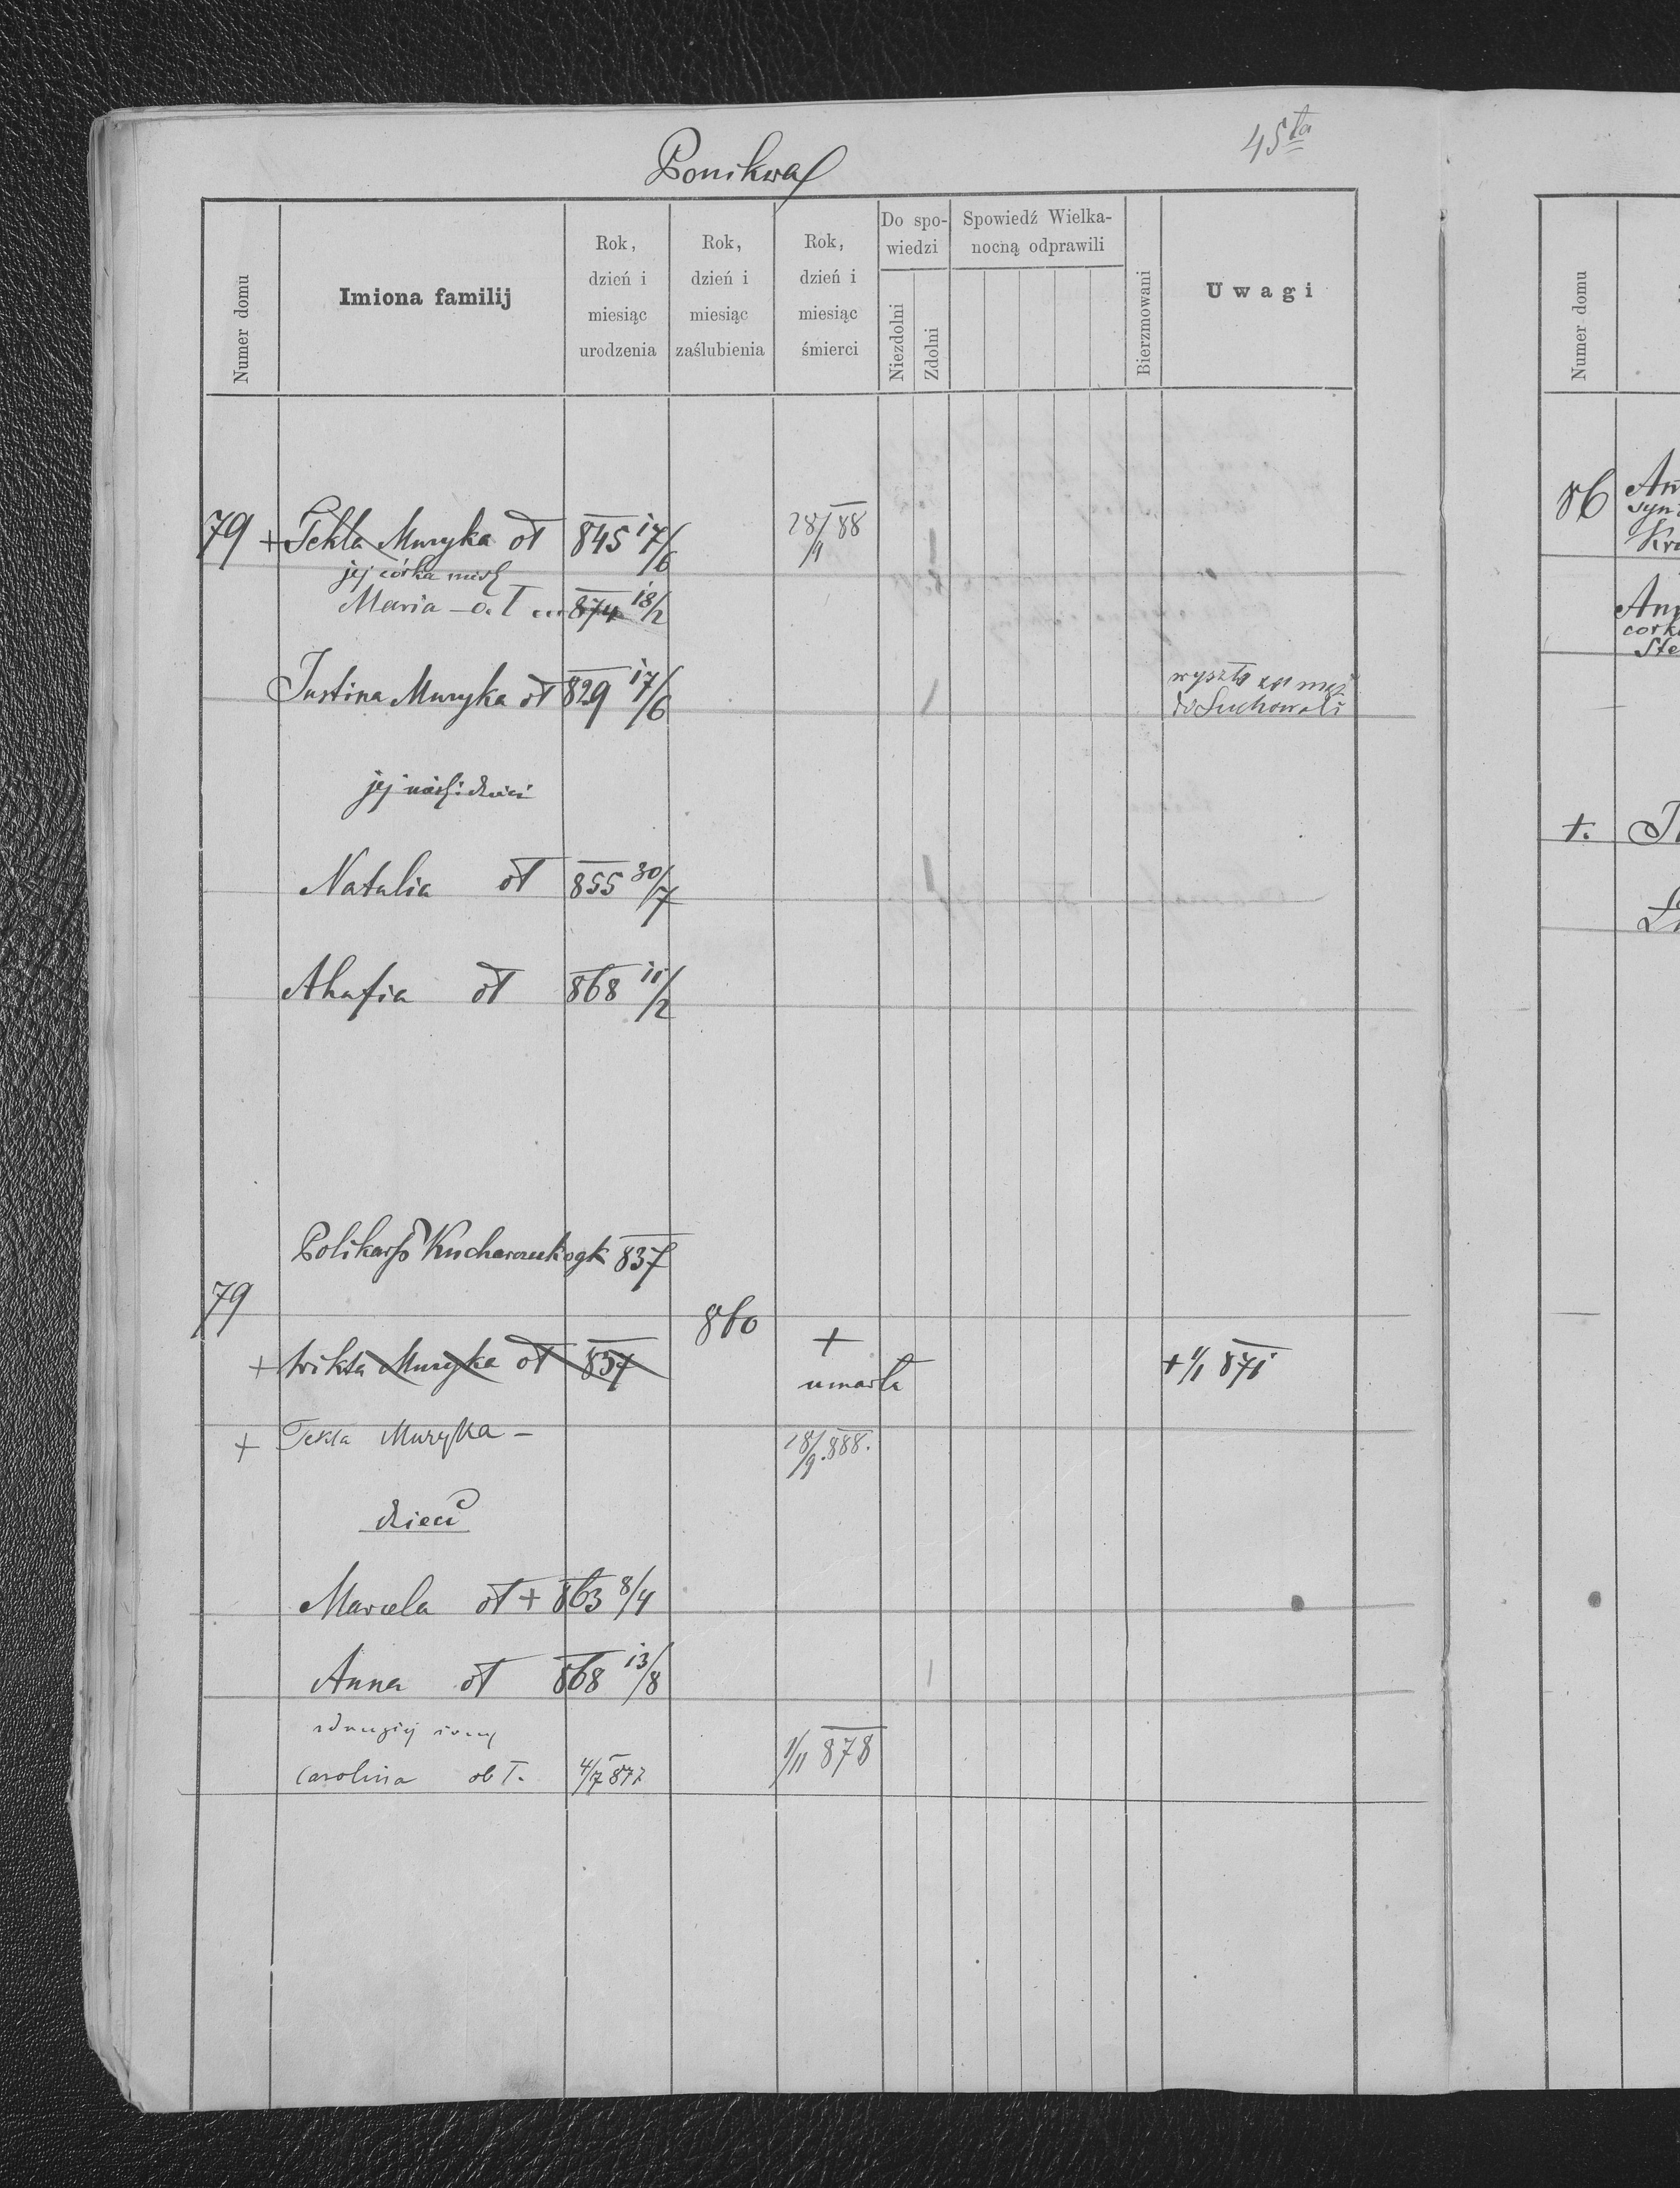 45ta
Ponikwa
Numer domu
Imiona familij
Rok, dzień i miesiąc urodzenia
Rok, dzień i miesiąc zaślubienia
Rok, dzień i miesiąc śmierci
Do spo-
wiedzi
Niezdolni
Zdolni
Spowiedź Wielka-
nocną odprawili
Bierzmowani
Uwagi
79 + Tekla Muzyka oT 845 17/6 28/9 88
jej córka
Maria - o. T 874 18/2
Justina Muzyka oT 829 17/6
wyszła za mąż
do Suchowoli
jej dzieci
Natalia oT 855 30/7
Ahafia oT 868 11/2
Polikarp ogk 837
79 860
+ Wikta Muzyka oT 837 + umarła + 1/1 871
+ Tekla Muzyka - 28/9 888.
dzieci
Marcela oT + 863 8/4
Anna oT 868 13/8
z drugiej żony
Carolina ob T. 4/7 877 1/11 878
Numer domu
86
syn
+.